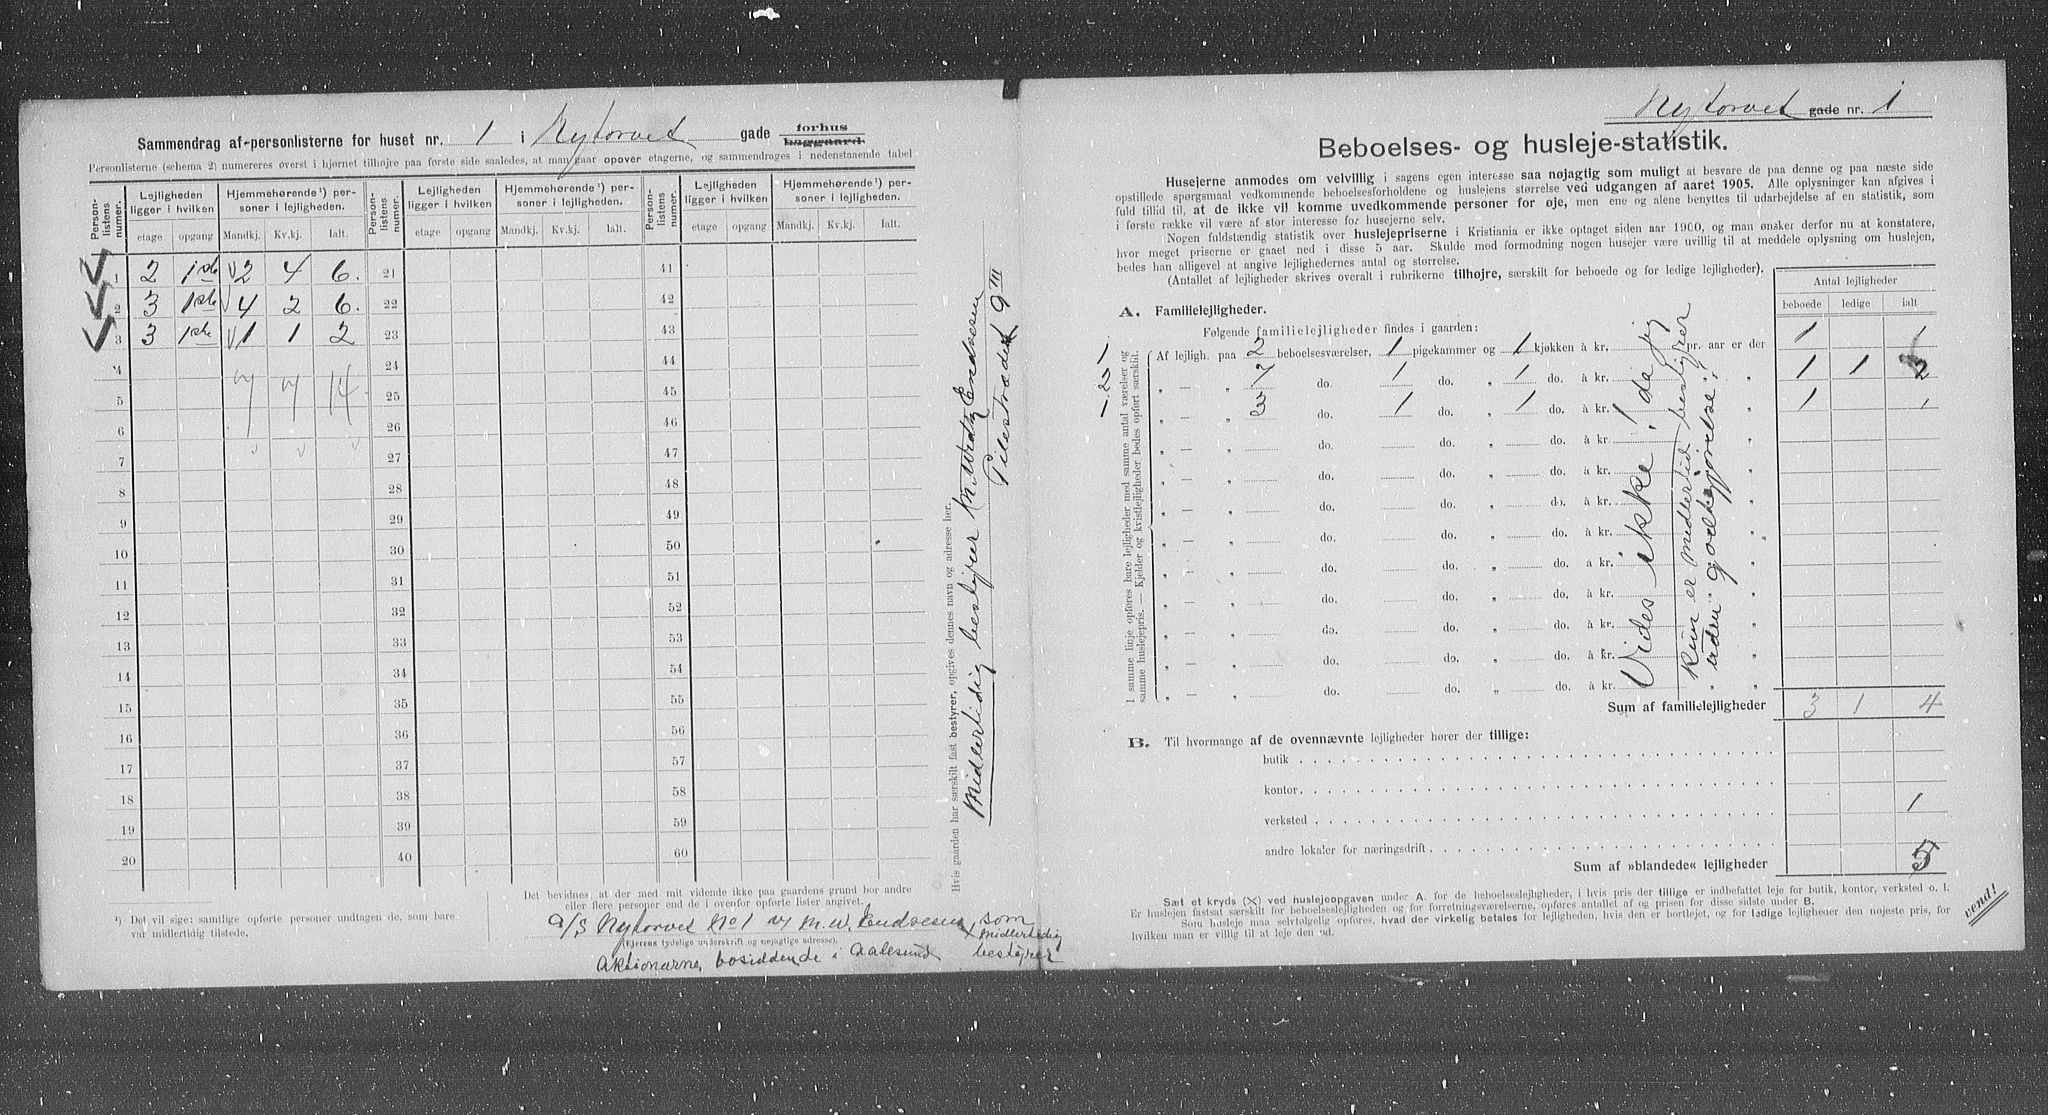 Sammendrag af personlisterne for huset nr. 1 i Nytorvet gade forhus baggaard.
Personlisterne (schema 2) numereres øverst i hjørnet tilhøjre paa første side saaledes, at man gaar opover etagerne, og sammendrages i nedenstaaende tabel
Person-listens numer. Lejligheden ligger i hvilken Hjemmehørende¹) personer i lejligheden. Person-listens numer. Lejligheden ligger i hvilken Hjemmehørende¹) personer i lejligheden. Person-listens numer. Lejligheden ligger i hvilken Hjemmehørende¹) personer i lejligheden.
etage opgang Mandkj. Kv.kj. Ialt. etage opgang Mandkj. Kv.kj. Ialt. etage opgang Mandkj. Kv.kj. Ialt.
1 2 1ste 2 4 6. 21 41
2 3 1ste 4 2 6. 22 42
3 3 1ste 1 1 2 23 43
4 24 44
5 7 7 14 25 45
6 26 46
7 27 47
8 28 48
9 29 49
10 30 50
11 31 51
12 32 52
13 33 53
14 34 54
15 35 55
16 36 56
17 37 57
18 38 58
19 39 59
20 40 60
¹) Det vil sige: samtlige opførte personer undtagen de, som bare
var midlertidig tilstede.
Det bevidnes, at der med mit vidende ikke paa gaardens grund bor andre
eller flere personer end de i ovenfor opførte lister angivet.
A/S Nytorvet No 1 v/ M. W. Endresen, som
(Ejerens tydelige underskrift og nøjagtige adresse). midlertidig
Aktionærne, bosiddende i Aalesund bestyrer
Hvis gaarden har særskilt fast bestyrer, opgives dennes navn og adresse her.
Midlertidig bestyrer M. Endresen
9 III
Nytorvet gade nr. 1
Beboelses- og husleje-statistik.
Husejerne anmodes om velvillig i sagens egen interesse saa nøjagtig som muligt at besvare de paa denne og paa næste side
opstillede spørgsmaal vedkommende beboelsesforholdene og huslejens størrelse ved udgangen af aaret 1905. Alle oplysninger kan afgives i
fuld tillid til, at de ikke vil komme uvedkommende personer for øje, men ene og alene benyttes til udarbejdelse af en statistik, som
i første række vil være af stor interesse for husejerne selv.
Nogen fuldstændig statistik over huslejepriserne i Kristiania er ikke optaget siden aar 1900, og man ønsker derfor nu at konstatere,
hvor meget priserne er gaaet ned i disse 5 aar. Skulde mod formodning nogen husejer være uvillig til at meddele oplysning om huslejen,
bedes han alligevel at angive lejlighedernes antal og størrelse.
(Antallet af lejligheder skrives overalt i rubrikerne tilhøjre, særskilt for beboede og for ledige lejligheder).
Antal lejligheder
beboede ledige ialt
A. Familielejligheder.
Følgende familielejligheder findes i gaarden:
I samme linje opføres bare lejligheder med samme antal værelser og samme huslejepris. — Kjelder og kvistlejligheder bedes opført særskilt.
Af lejligh. paa 2 beboelsesværelser, 1 pigekammer og 1 kjøkken à kr. pr. aar er der 1 1
„ — „ do. 1 do. „ 1 do. à kr. „ 1 1 2
„ — „ 3 do. 1 do. „ 1 do. à kr. „ 1 1
„ — „ do. do. „ do. à kr. „
„ — „ do. do. „ do. à kr. „
„ — „ do. do. „ do. à kr. „
„ — „ do. do. „ do. à kr. „
„ — „ do. do. „ do. à kr. „
„ — „ do. do. „ do. à kr. „
„ — „ do. do. „ do. à kr. „
„ — „ do. do. „ do. à kr. „
„ — „ do. do. „ do. à kr. „
Vides ikke! da jeg
kun er midlertid. bestyrer
uden godtgjørelse.
Sum af familielejligheder 3 1 4
B. Til hvormange af de ovennævnte lejligheder hører der tillige:
butik
kontor 1
verksted
andre lokaler for næringsdrift
Sum af »blandede« lejligheder 5
Sæt et kryds (X) ved huslejeopgaven under A. for de beboelseslejligheder, i hvis pris der tillige er indbefattet leje for butik, kontor, verksted o. l.
Er huslejen fastsat særskilt for beboelseslejligheden og for forretningsværelserne, opføres antallet af og prisen for disse sidste under B.
Som husleje maa selvfølgelig opføres, hvad der virkelig betales for lejligheden, hvis den er bortlejet, og for ledige lejligheder den nøjeste pris, for
hvilken man er villig til at leje den ud.
vend!